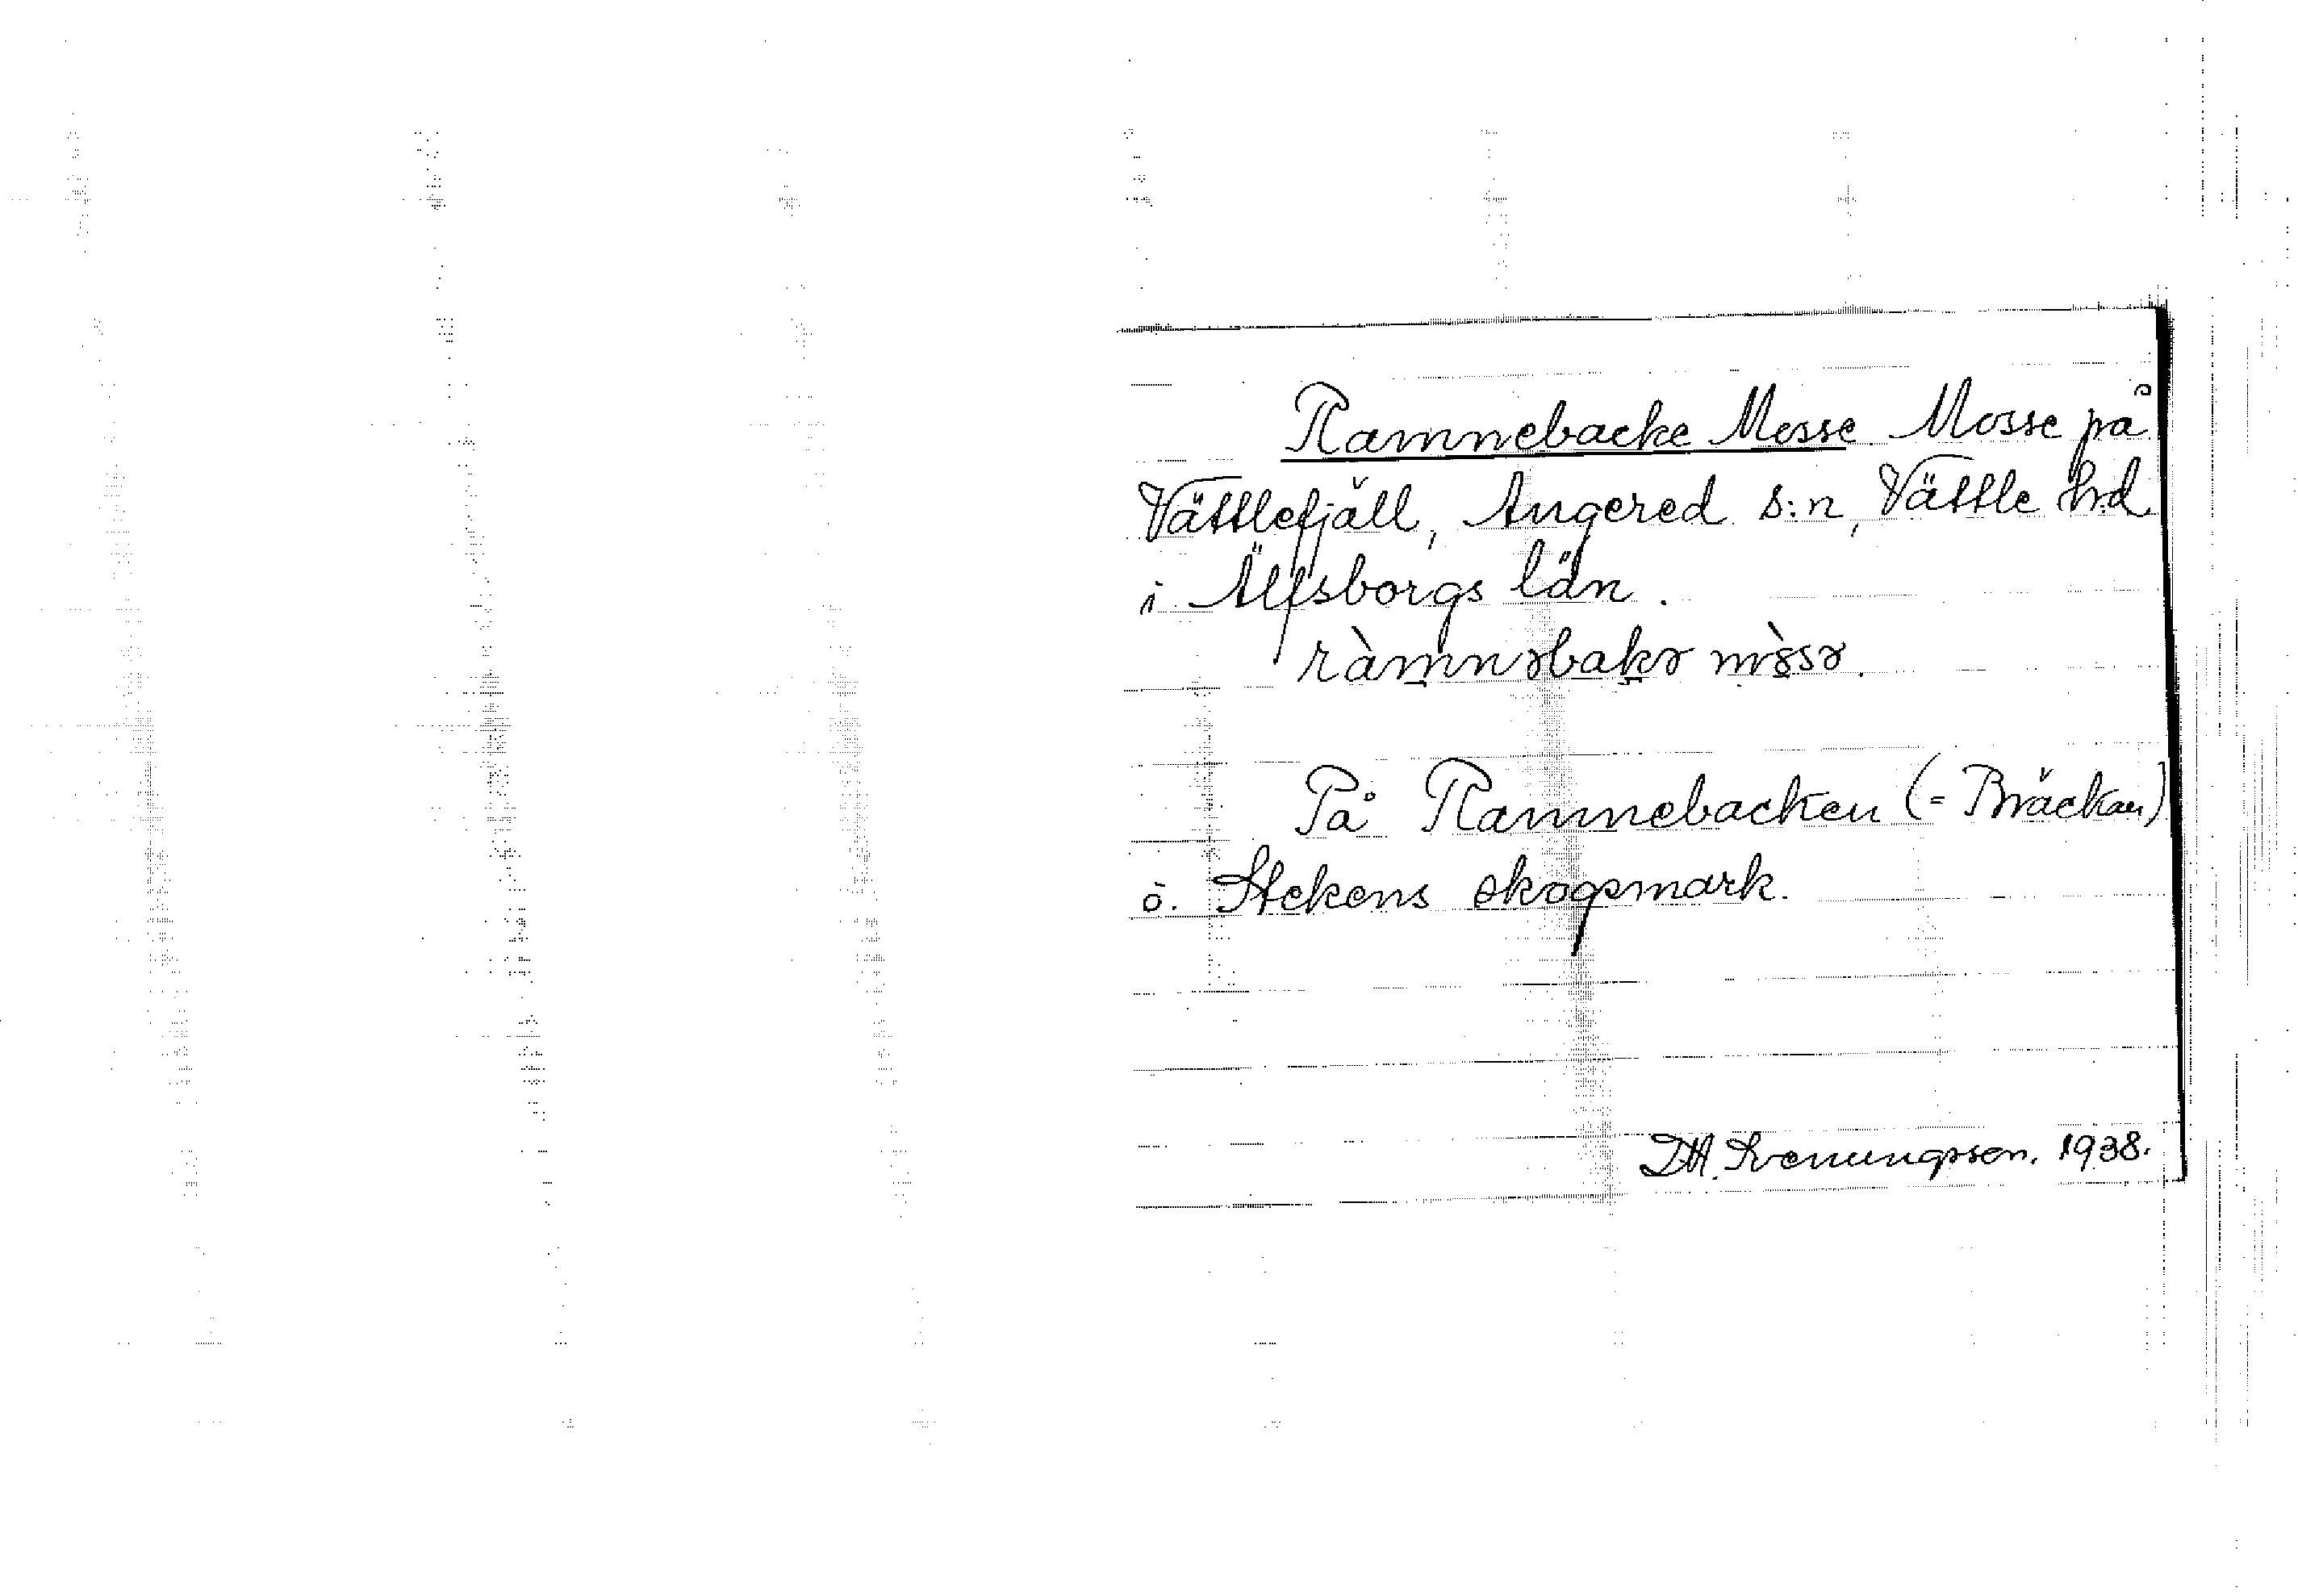 Ramnebacke Mosse. Mosse på
Vättlefjäll, Angered s:n, Vättle hd
i Älfsborgs län.
ràmnəbakə mòsə.
På Ramnebacken (= Bräckan)
ö. Stekens skogsmark.
D.H. Svenungsson. 1938.